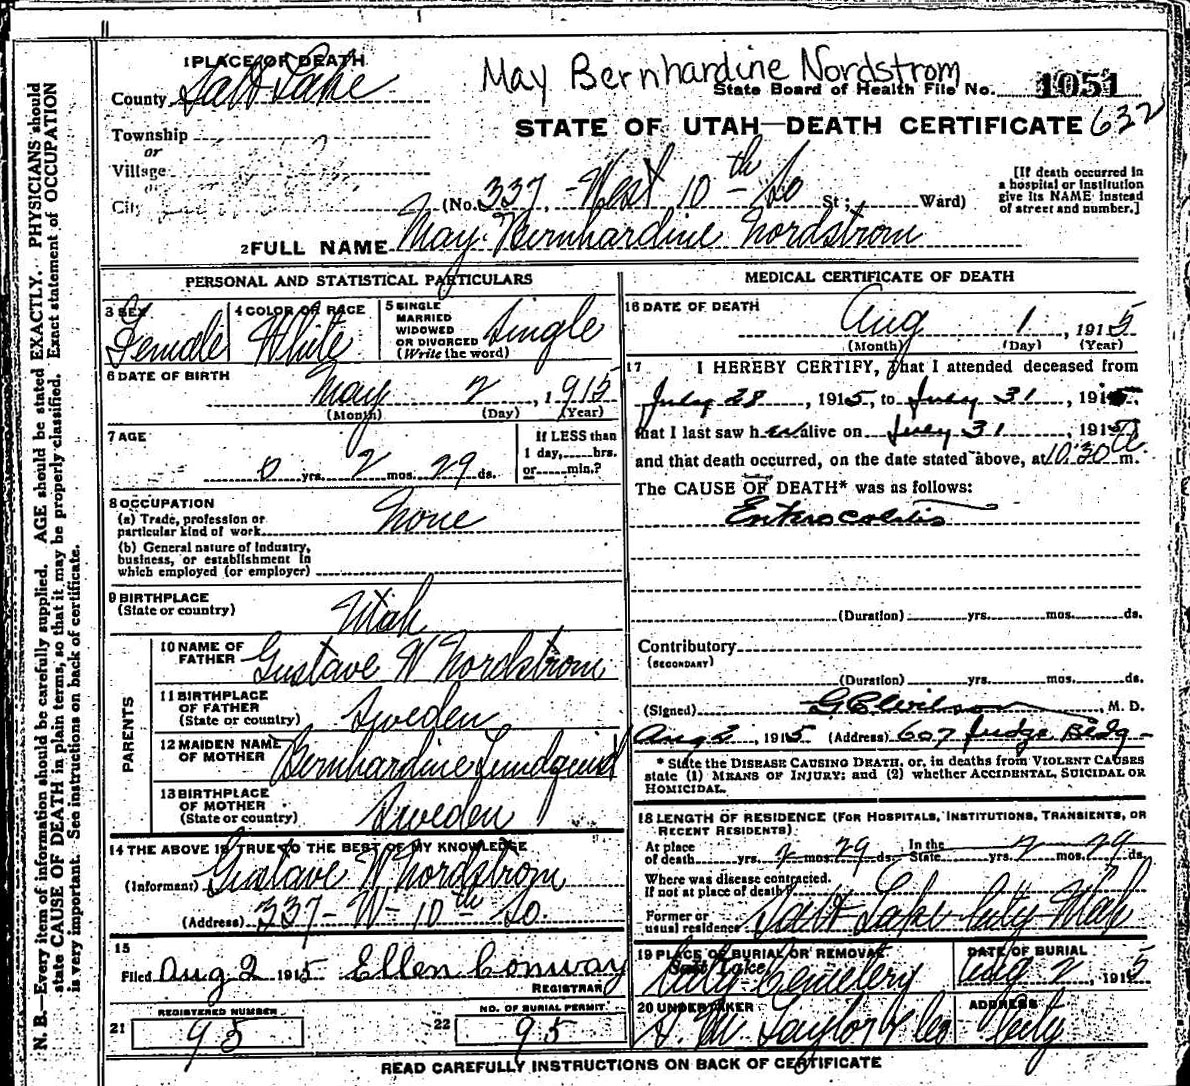 1 PLACE OF DEATH
May Bernhardine Nordstrom
County Salt Lake
State Board of Health File No. 1051
Township
STATE OF UTAH—DEATH CERTIFICATE 632
or
Village
or
City
(No. 337 - West 10th So St; Ward)
[If death occurred in a hospital or Institution give its NAME instead of street and number.]
2 FULL NAME May Bernhardine Nordstrom
PERSONAL AND STATISTICAL PARTICULARS
3 SEX
Female
4 COLOR OR RACE
White
5 SINGLE
MARRIED
WIDOWED
OR DIVORCED
(Write the word)
Single
6 DATE OF BIRTH
May 2, 1915
(Month) (Day) (Year)
7 AGE
0 yrs. 2 mos. 29 ds.
If LESS than
1 day, hrs.
or min.?
8 OCCUPATION
(a) Trade, profession or
particular kind of work None
(b) General nature of Industry,
business, or establishment in
which employed (or employer)
9 BIRTHPLACE
(State or country)
Utah
PARENTS
10 NAME OF
FATHER Gustave W Nordstrom
11 BIRTHPLACE
OF FATHER
(State or country) Sweden
12 MAIDEN NAME
OF MOTHER Bernhardine Lundquist
13 BIRTHPLACE
OF MOTHER
(State or country) Sweden
14 THE ABOVE IS TRUE TO THE BEST OF MY KNOWLEDGE
(Informant) Gustave W Nordstrom
(Address) 337- W- 10th So.
15
Filed Aug 2 1915 Ellen Conway
REGISTRAR
REGISTERED NUMBER
21 95
NO. OF BURIAL PERMIT
22 95
MEDICAL CERTIFICATE OF DEATH
16 DATE OF DEATH
Aug 1, 1915
(Month) (Day) (Year)
17 I HEREBY CERTIFY, That I attended deceased from
July 28, 1915, to July 31, 1915,
that I last saw her alive on July 31, 1915,
and that death occurred, on the date stated above, at 10:30 a m.
The CAUSE OF DEATH* was as follows:
Enterocolitis
(Duration) yrs. mos. ds.
Contributory
(SECONDARY)
(Duration) yrs. mos. ds.
(Signed) Wilson, M. D.
Aug 2, 1915 (Address) 607 Judge Bldg -
* State the DISEASE CAUSING DEATH, or, in deaths from VIOLENT CAUSES
state (1) MEANS OF INJURY; and (2) whether ACCIDENTAL, SUICIDAL OR
HOMICIDAL.
18 LENGTH OF RESIDENCE (FOR HOSPITALS, INSTITUTIONS, TRANSIENTS, OR
RECENT RESIDENTS)
At place
of death yrs. 2 mos. 29 ds. In the State yrs. 2 mos. 29 ds.
Where was disease contracted,
If not at place of death?
Former or
usual residence Salt Lake City Utah
19 PLACE OF BURIAL OR REMOVAL
Salt Lake
City Cemetery
DATE OF BURIAL
Aug 2, 1915
20 UNDERTAKER
S. M. Taylor & Co
ADDRESS
City
READ CAREFULLY INSTRUCTIONS ON BACK OF CERTIFICATE
N. B.—Every item of information should be carefully supplied. AGE should be stated EXACTLY. PHYSICIANS should
state CAUSE OF DEATH in plain terms, so that it may be properly classified. Exact statement of OCCUPATION
is very important. See instructions on back of certificate.